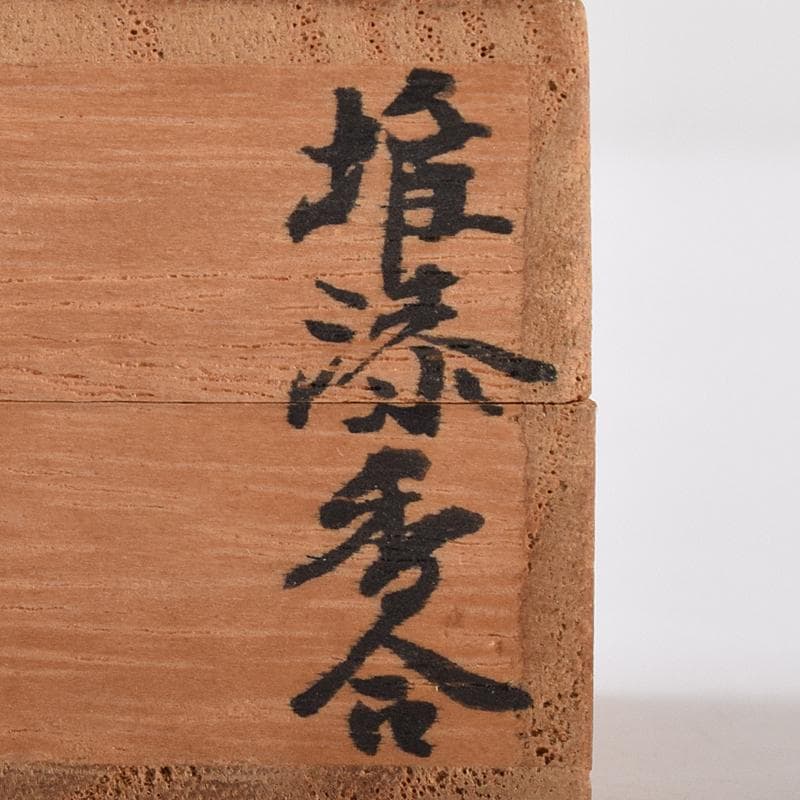 堆漆香合